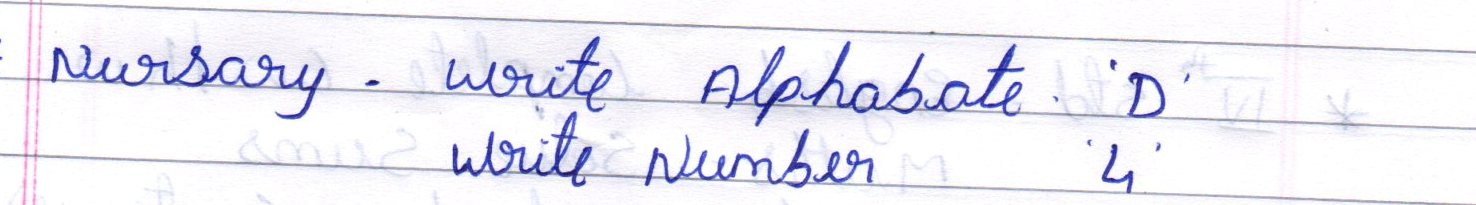 Nursary - write Alphabate. 'D'
write Number '4'